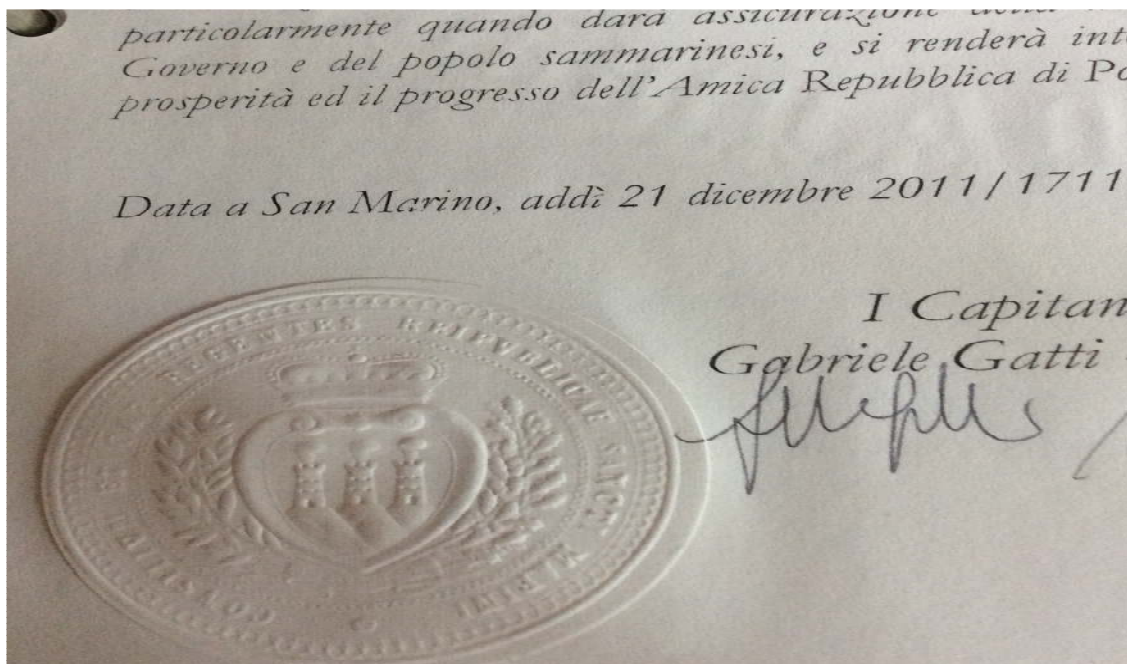 particolarmente quando darà assicurazione della
Governo e del popolo sammarinesi, e si renderà
prosperità ed il progresso dell'Amica Repubblica di
Data a San Marino, addì 21 dicembre 2011/1711
I Capitan
Gabriele Gatti
CONSULES ET REGENTES REIPVBLICÆ SANCTI MARINI